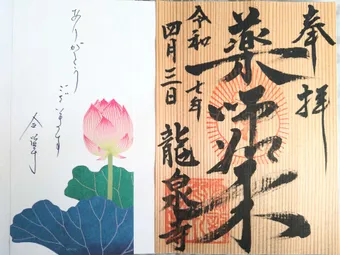 奉拝
薬師如来
龍泉寺
令和七年
四月三日
ありがとう
ございます
合掌